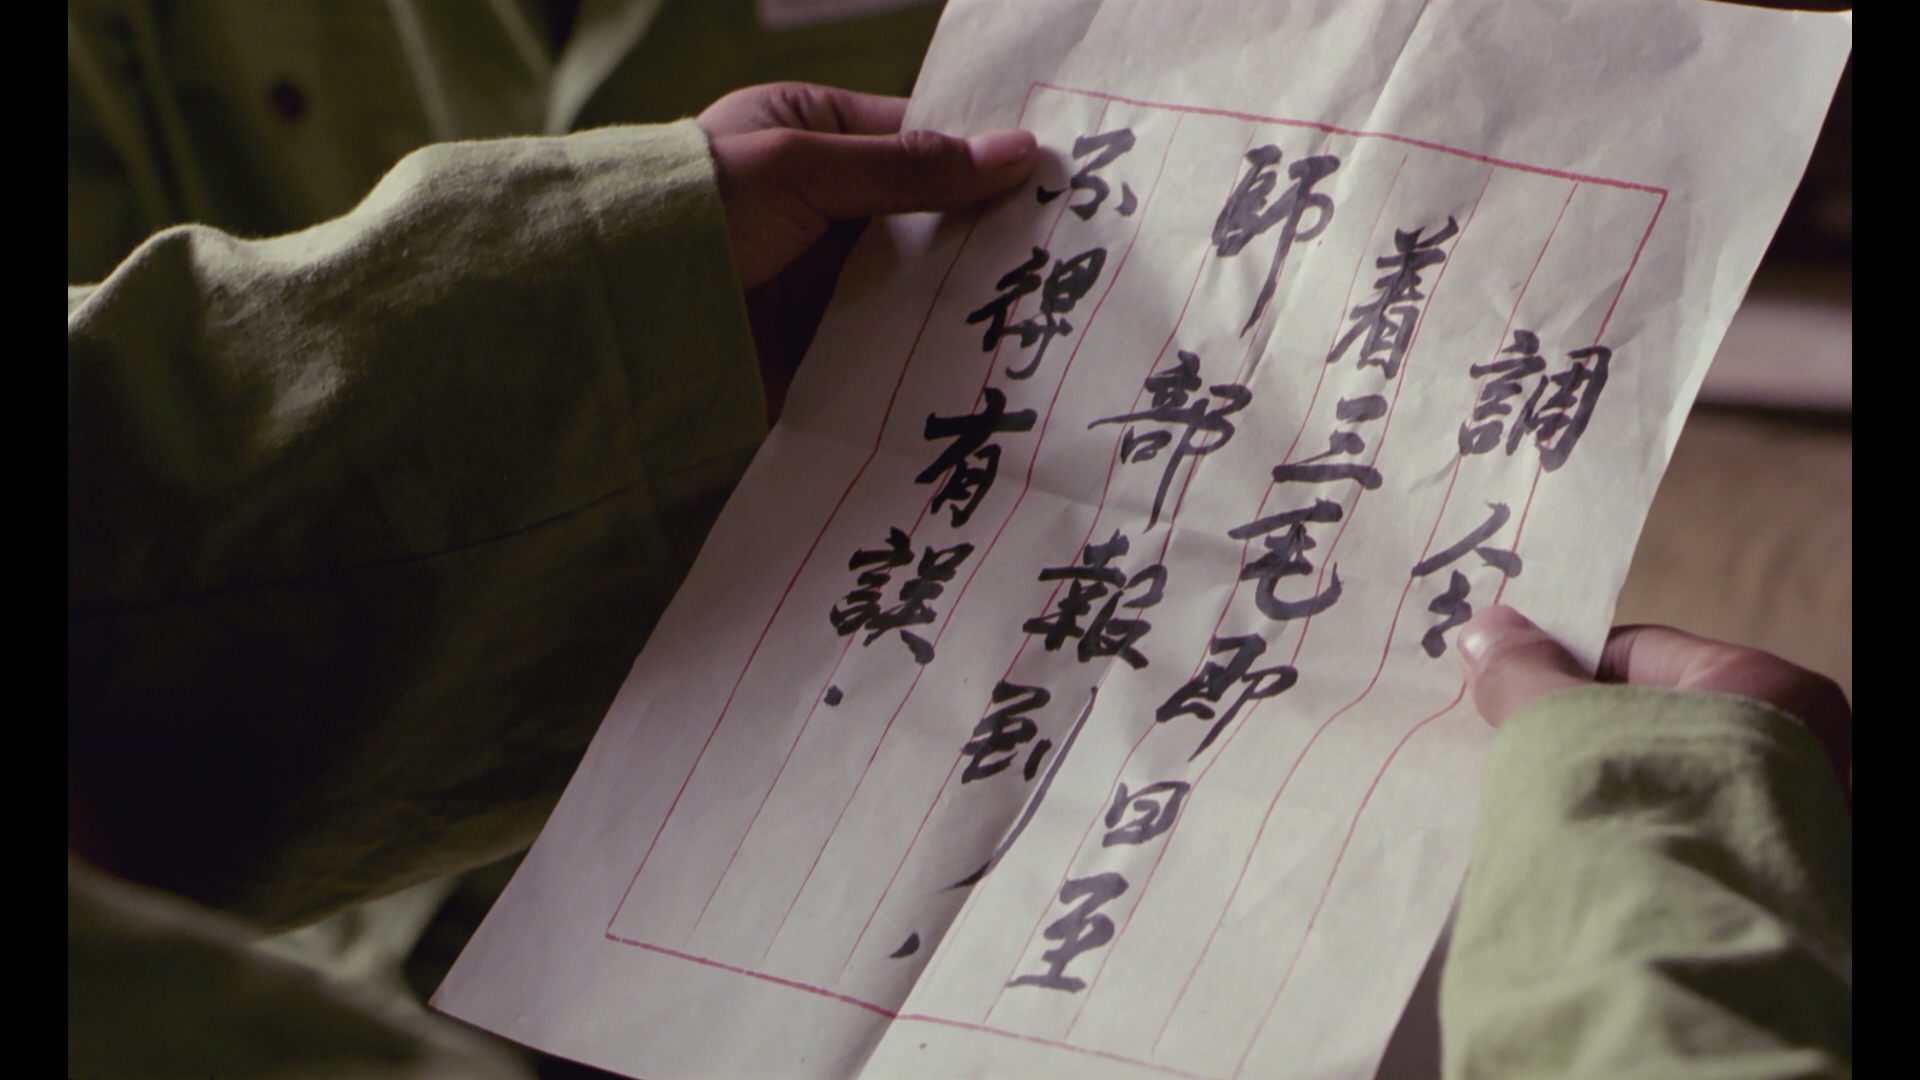 調令
着三毛即日至
師部報到，
不得有誤.